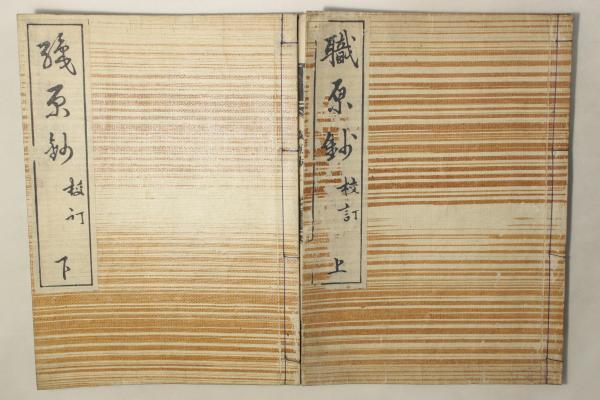 職原鈔 校訂 上
職原鈔 校訂 下